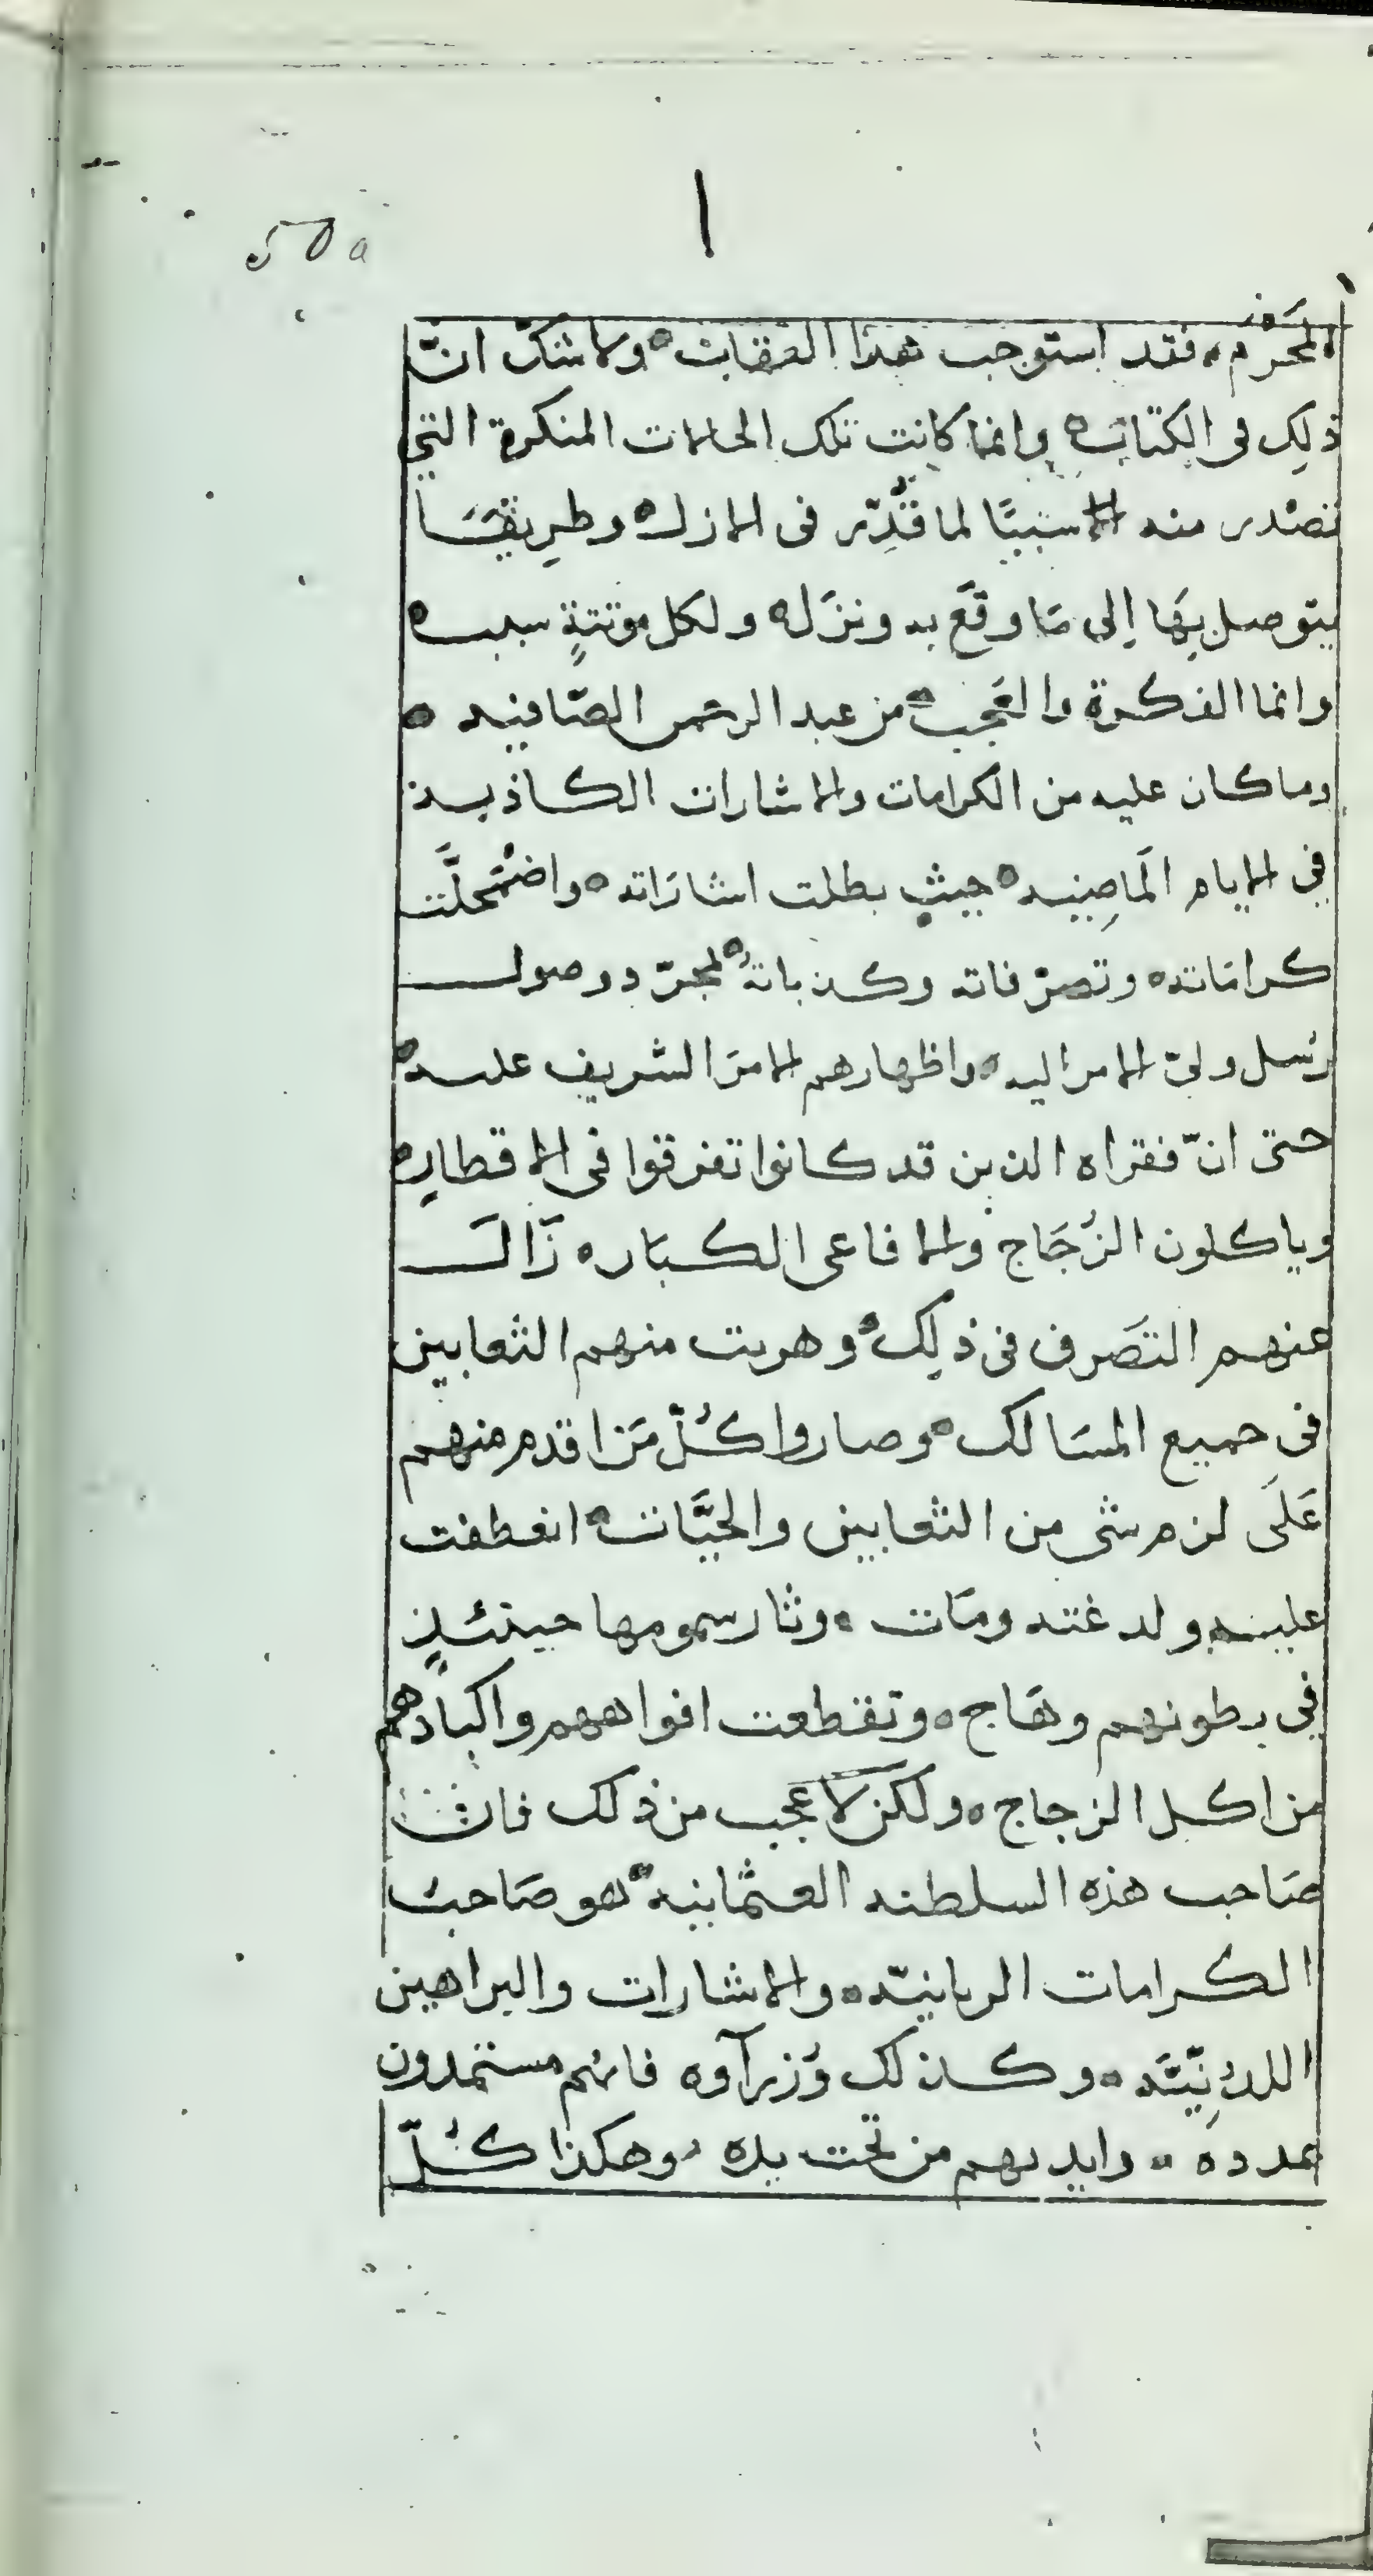 ا
50a
المحرّم، فقد استوجب بهذا العقاب ه ولا شك انّ
ذلِك فى الكتاب ه وانما كانت تلك الحالات المنكرة التى
تصدر منه الا سببًا لما قُدِّر فى الازل ه وطريقًا
يتوصل بِهَا اِلى مَا وقَع به ونزَل ه ولكل موتتةٍ سبب ه
وانما الفكرة والعَجب ه من عبد الرحمن الصّافيه ه
وما كان عليه من الكرامات والاشارات الكاذبة
في الايام الماضِيه ه حيث بطلت اشارَاته ه واضْمَحلَّت
كرامَاته ه وتصرّفاته وكذباته ه لمجرّد وصول
رُسل ولىّ الامر اليه ه واظهارهم الامرَ الشريف عليه ه
حتى انّ فقراه الذين قد كانوا تفرقوا فى الاقطارِ ه
وياكلون الزُجَاج والافاعى الكبَار ه زَالَ
عنهم التصَرف فى ذلِك ه وهربت منهم الثعابين
فى جميع المسَالك ه وصاروا كُلّ مَن اقدم منهم
عَلَى لزم شى من الثعابين والحيَّات ه انعطفت
عليه ولدغته ومَات ه وثار سمومها حينئذٍ
في بطونهم وهَاج ه وتقطعت افواههم واكبادهم
من اكل الزجاج ه ولكن لا عجب من ذلك فان
صَاحب هذه السلطنه العثمانيه ه هو صَاحبُ
الكرامات الربانيّه ه والاشارات والبراهين
اللدُنِيَّه ه وكذلك وُزرآوه فانهم مستمدون
بمدده ه وايديهم من تحت يده ه وهكذا كُلّ